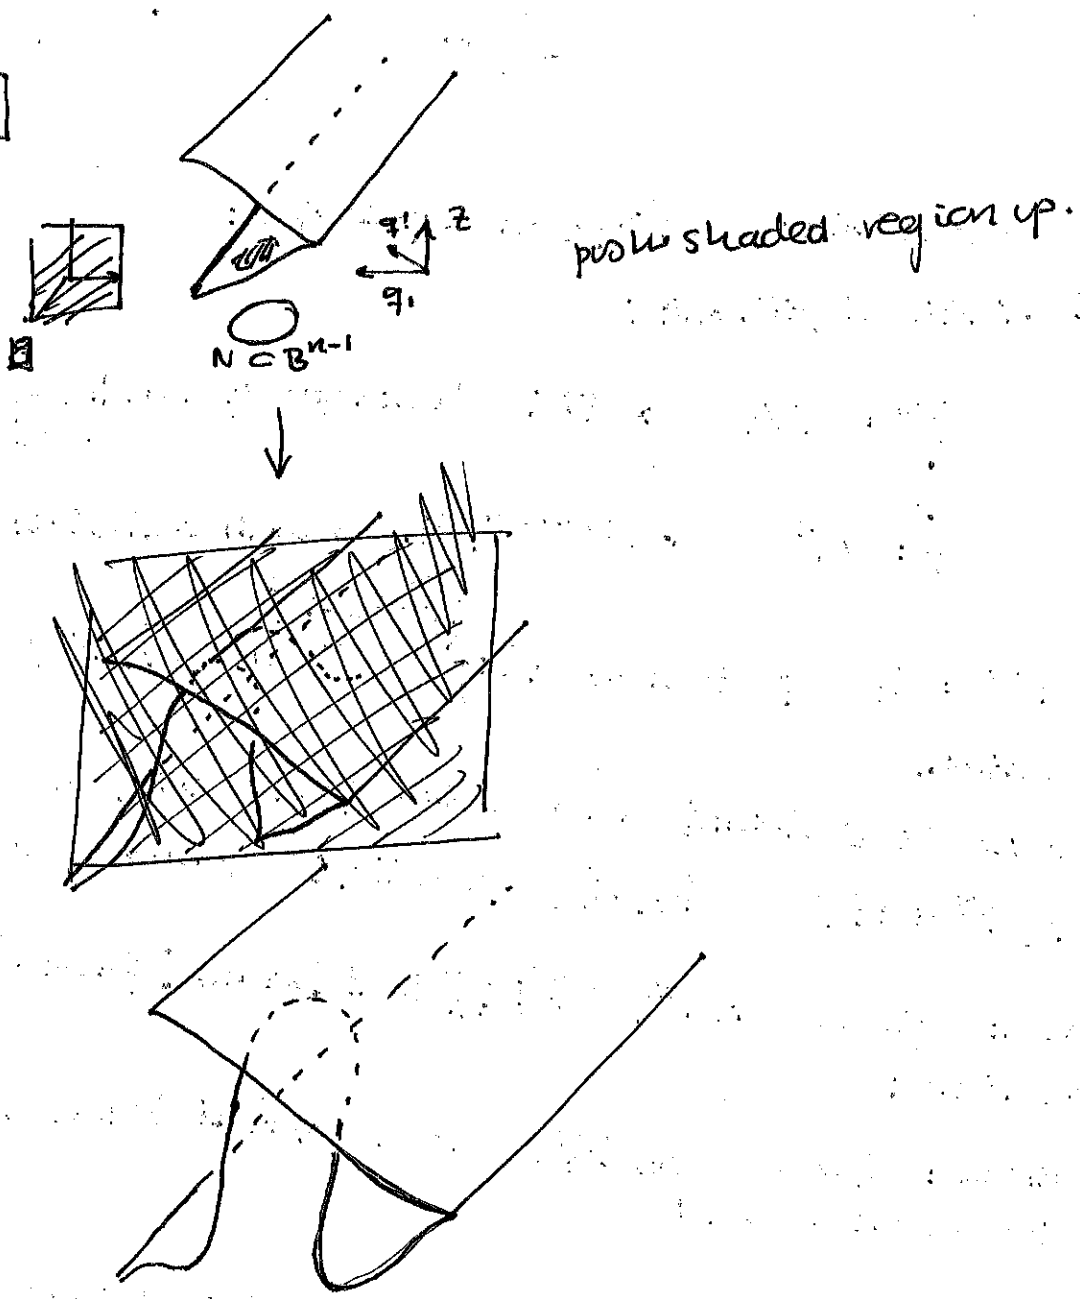 z
q'
q₁
push shaded region up.
N ⊂ Bⁿ⁻¹